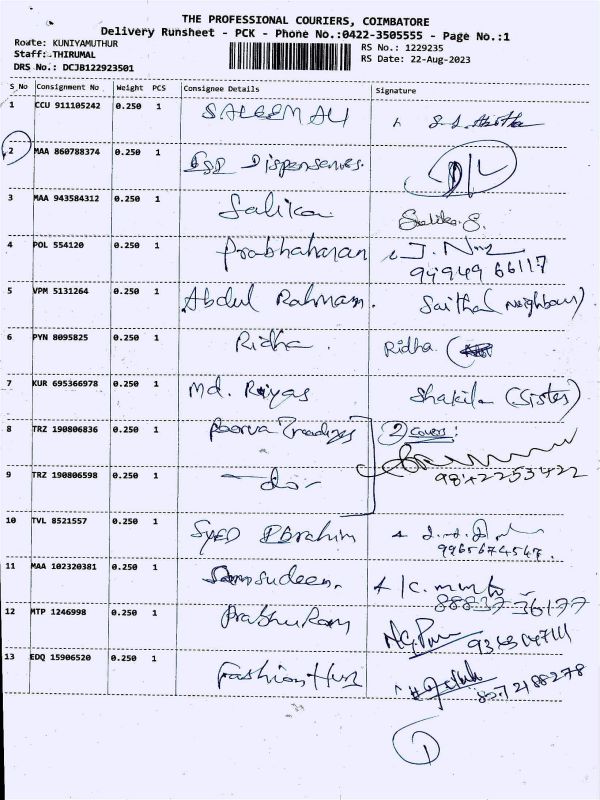 THE PROFESSIONAL COURIERS, COIMBATORE
Delivery Runsheet - PCK - Phone No.:0422-3505555 - Page No.:1
Route: KUNIYAMUTHUR
RS No.: 1229235
Staff: THIRUMAL
RS Date: 22-Aug-2023
DRS No.: DCJB122923501
S_No Consignment No Weight PCS Consignee Details Signature
1 CCU 911105242 0.250 1 SALEEM ALI
2 MAA 860788374 0.250 1 Dispensaries.
3 MAA 943584312 0.250 1 Salika Salika.S.
4 POL 554120 0.250 1 Prabhaharan J.
94949 66117
5 VPM 5131264 0.250 1 Abdul Rahman. Saitha (Neighbour)
6 PYN 8095825 0.250 1 Ridha. Ridha (
7 KUR 695366978 0.250 1 Md. Riyas Shakila (Sister)
8 TRZ 190806836 0.250 1 Poorva Tradings 2 Covers:
9842253422
9 TRZ 190806598 0.250 1 - do -
10 TVL 8521557 0.250 1 Syed Ebrahim
9965674547.
11 MAA 102320381 0.250 1 Samsudeen.
12 MTP 1246998 0.250 1 Prabhu Ram
13 EDQ 15906520 0.250 1 Fashion Hub 8072188278
1